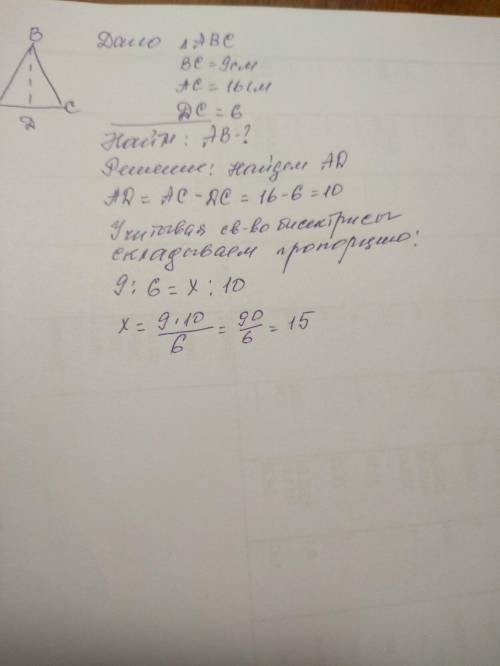 B
C
D
Дано △ABC
BC = 9см
AC = 16см
DC = 6
Найти: AB-?
Решение: Найдем AD
AD = AC - DC = 16 - 6 = 10
Учитывая св-во бисектрисы
складываем пропорцию:
9 : 6 = x : 10
x = 9·10/6 = 90/6 = 15